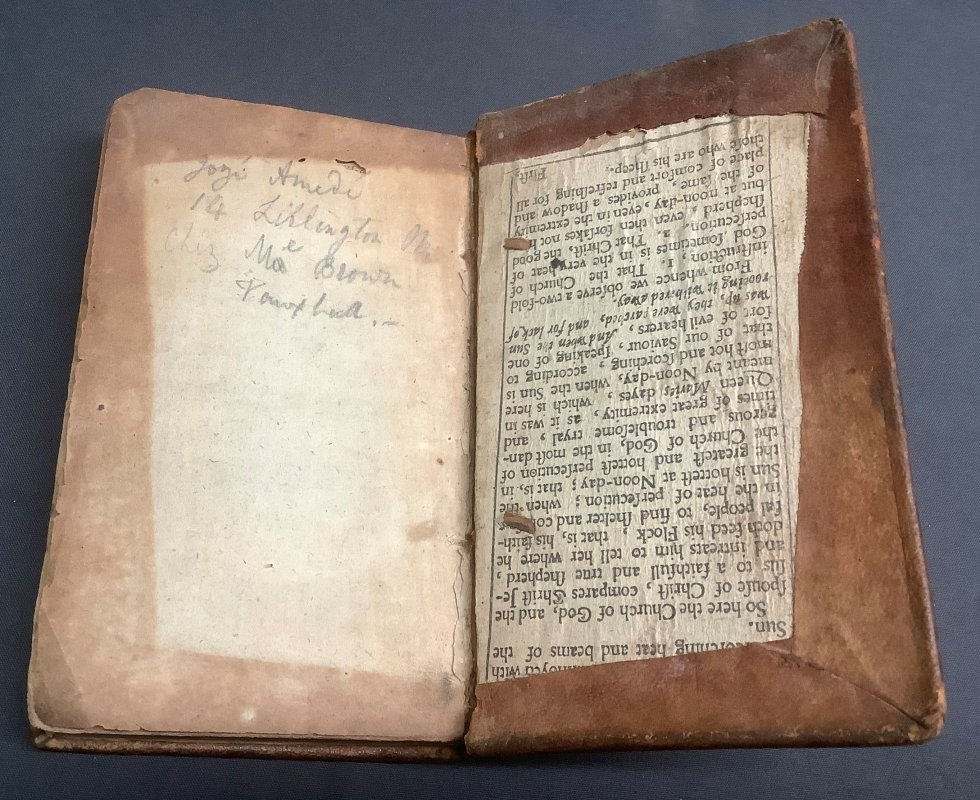 Jozé Amedé
14
Chez Me Brown
Vauxhall. —
noyed with
heat and beams of the
Sun.
So here the Church of God, and the
ſpouſe of Chriſt, compares Chriſt Je-
ſus to a faithfull and true ſhepherd,
and intreats him to tell her where he
doth feed his Flock, that is, his faith-
ful people, to find ſhelter and
in the heat of perſecution; when the
Sun is hotteſt at Noon-day; that is, in
the greateſt and hotteſt perſecution of
the Church of God, in the moſt dan-
gerous and troubleſome tryal, and
times of great extremity, as it was in
Queen Maries dayes, which is here
meant by Noon-day, when the Sun is
moſt hot and ſcorching, according to
that of our Saviour, ſpeaking of one
ſort of evil hearers, And when the Sun
was up, they were parched, and for lack of
rooting it withered away.
From whence we obſerve a two-fold
inſtruction, 1. That the Church of
God ſometimes is in the very heat of
perſecution. 2. That Chriſt, the good
ſhepherd, even then forſakes not
but at noon-day, even in the extremity
of the ſame, provides a ſhadow and
place of comfort and refreſhing for all
thoſe who are his ſheep.
Firſt,